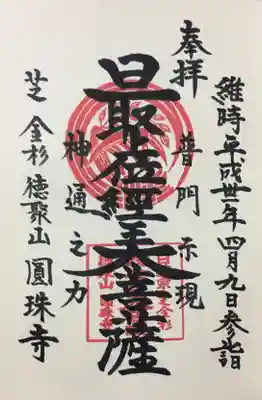 維時平成丗一年四月九日参詣
奉拝
普門示現
最位經王大菩薩
神通之力
芝金杉徳聚山圓珠寺